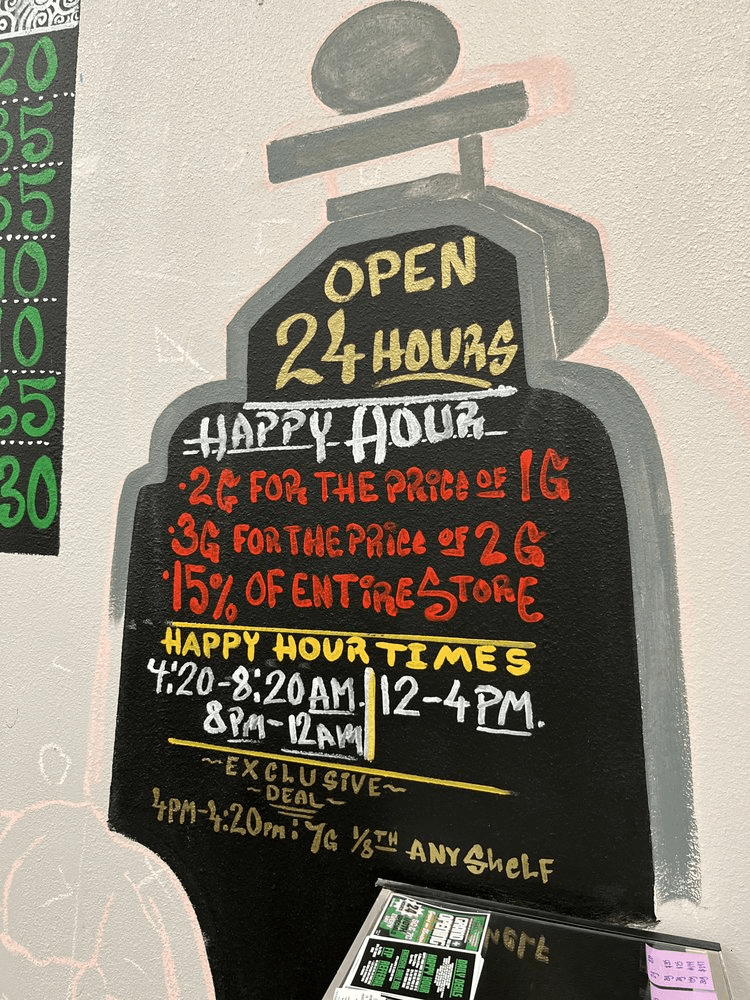 20
35
55
10
10
65
30
OPEN
24 HOURS
HAPPY HOUR
·2G FOR THE PRICE OF 1G
·3G FOR THE PRICE OF 2G
·15% OF ENTIRE STORE
HAPPY HOUR TIMES
4:20-8:20 AM. 12-4 PM.
8PM-12AM
~EXCLUSIVE~
~DEAL~
4PM-4:20PM: 7G 1/8TH ANY SHELF
GRAND
OPENING
DAILY DEALS
HAPPY HOUR